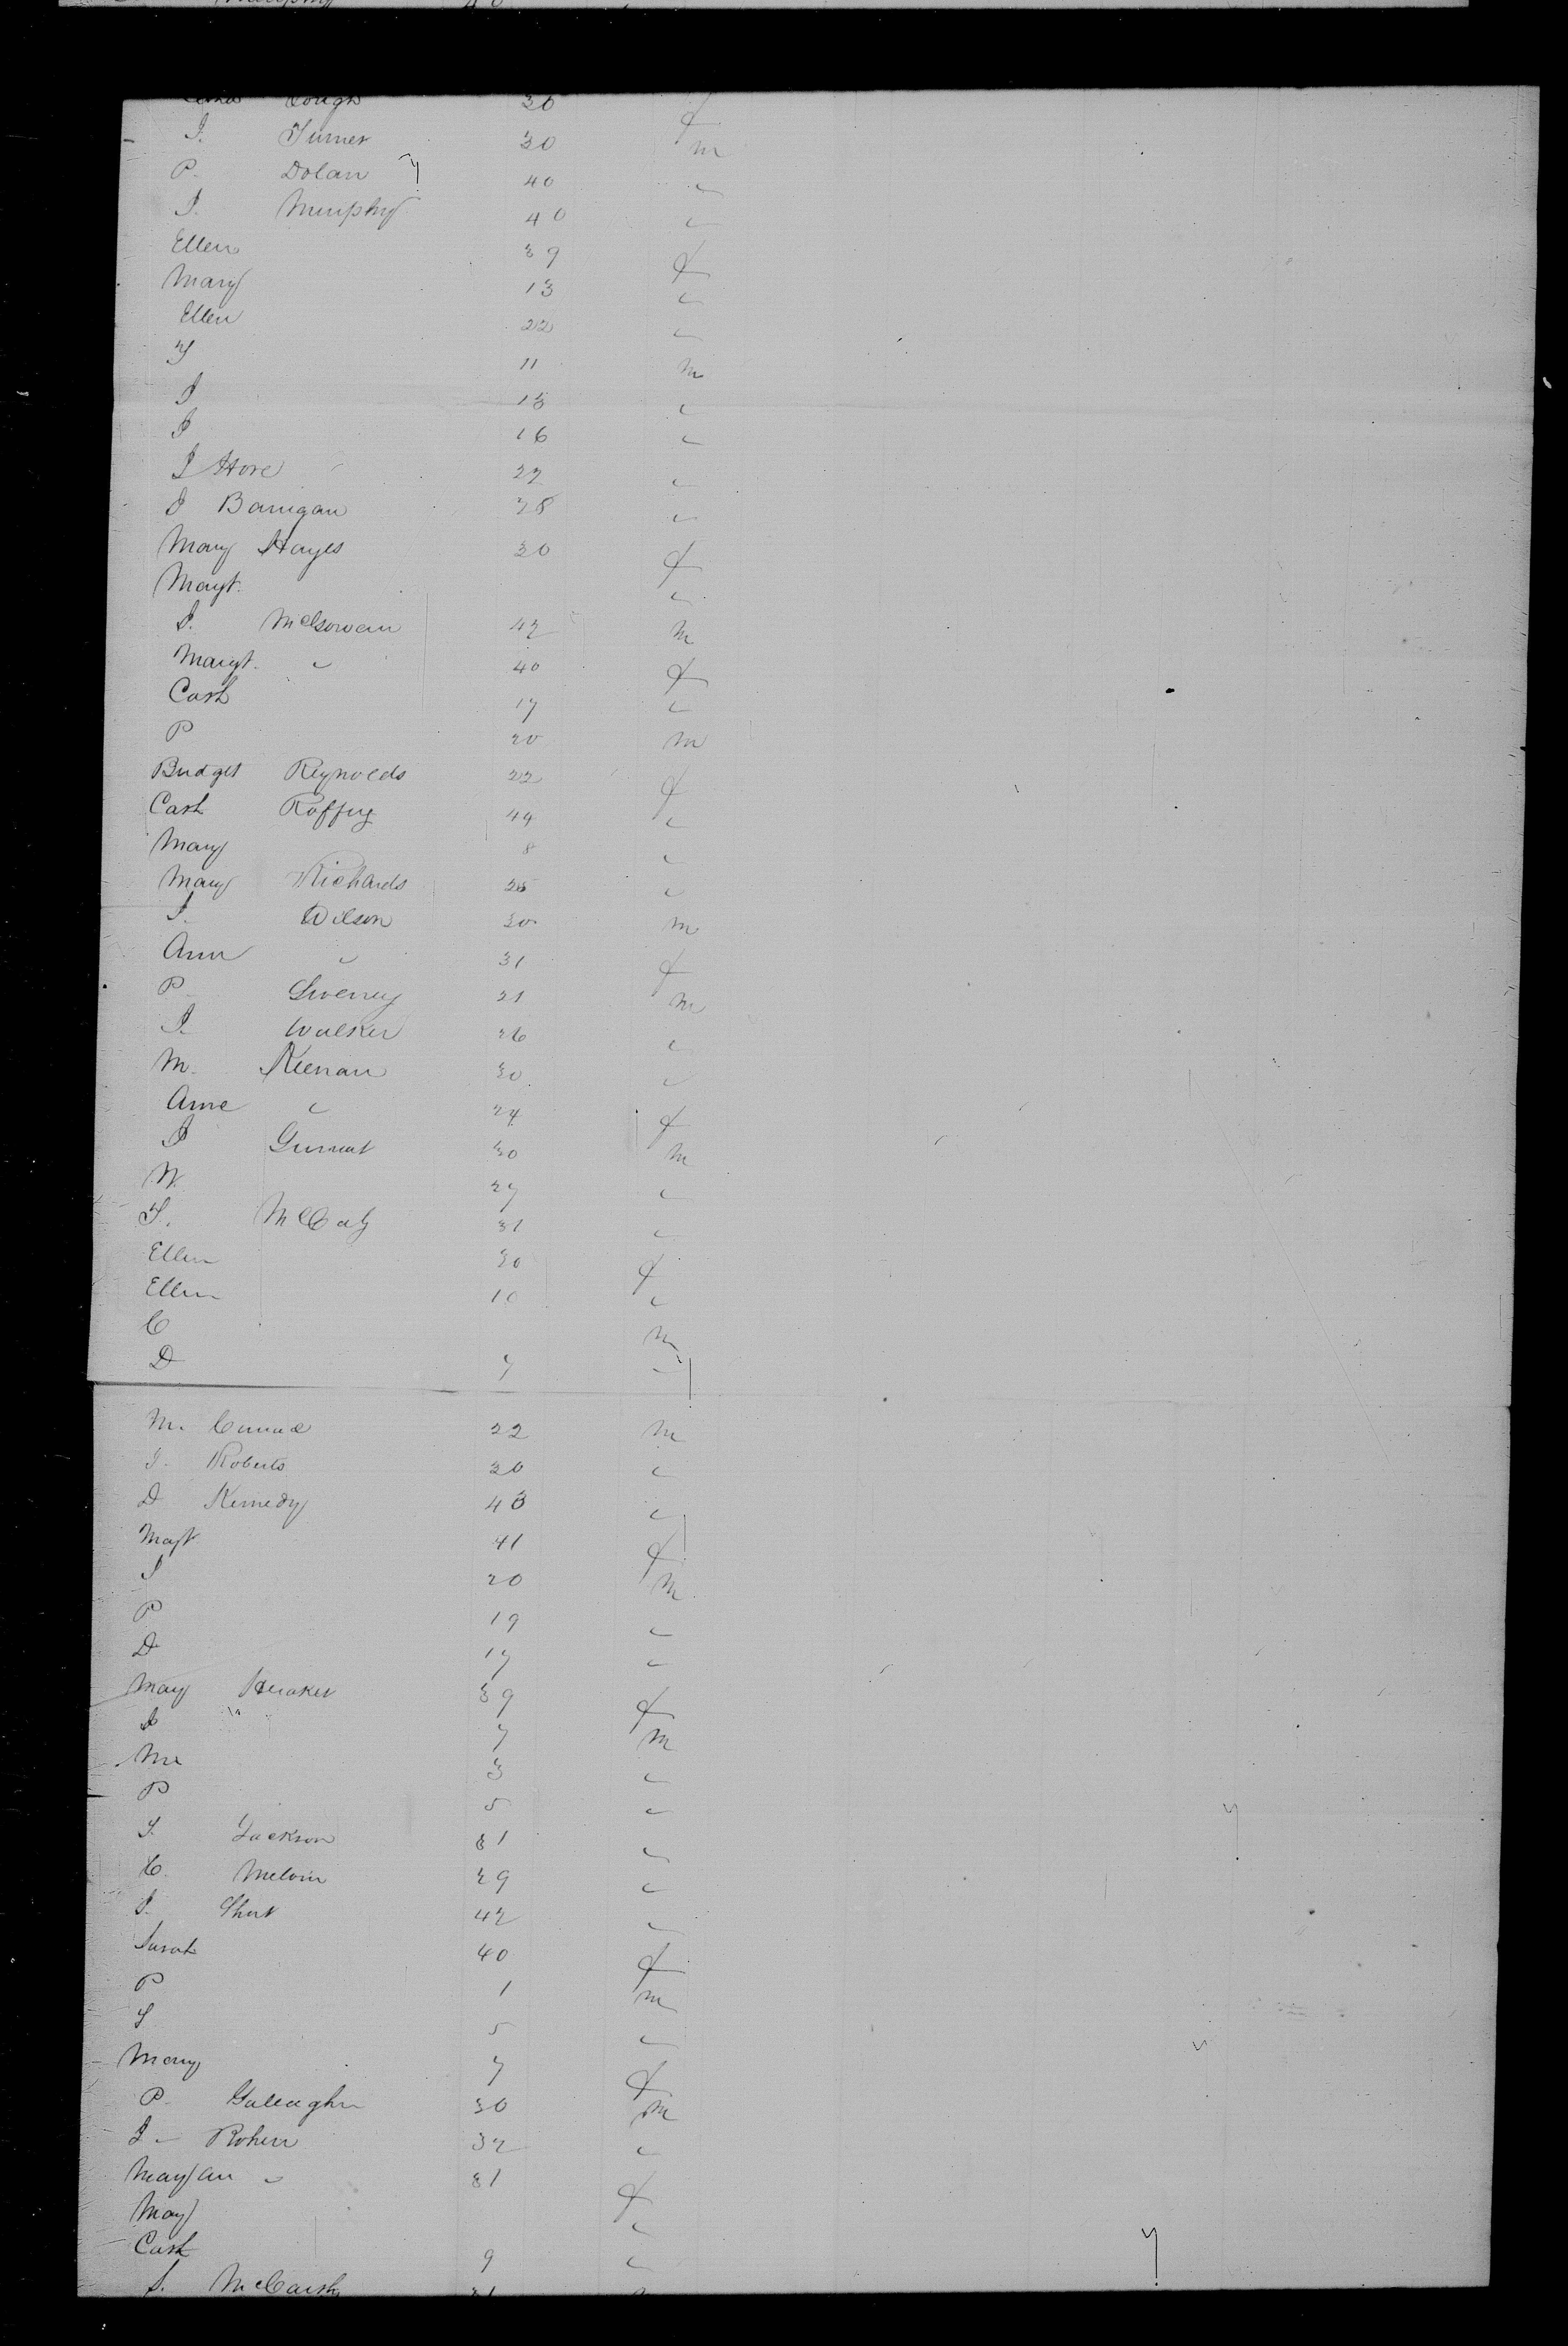 30 f
J. Turner 30 m
P. Dolan 40 "
J. Murphy 40 "
Ellen 39 f
Mary 13 "
Ellen 22 "
T 11 m
J 13 "
J 16 "
J Hore 22 "
J Banigan 28 "
Mary Hayes 30 f
Mayt. "
J. McGowan 42 m
Margt. " 40 f
Cath 17 "
P 20 m
Bridget Reynolds 22 f
Cath Raffity 44 "
Mary 8 "
Mary Richards 25 "
J. Wilson 30 m
Ann " 31 f
P. Sweeney 21 m
J. Walker 26 "
M. Keenan 30 "
Anne " 24 f
J 30 m
W. 27 "
T. 31 "
Ellen 30 f
Ellen 10 "
C m
D 7 "
M. 22 m
J. Roberts 30 "
D Kennedy 43 "
Mayt 41 f
J 20 m
P 19 "
D 17 "
Mary 39 f
J 7 m
3 "
P 5 "
T. Jackson 31 "
C. Melvin 29 "
J. Short 42 "
Sarah 40 f
P 1 m
T 5 "
Mary 7 f
P. Gallagher 30 m
J Rohen 32 "
Mary An " 31 f
Mary "
Cath 9 "
J. McCarthy 31 m